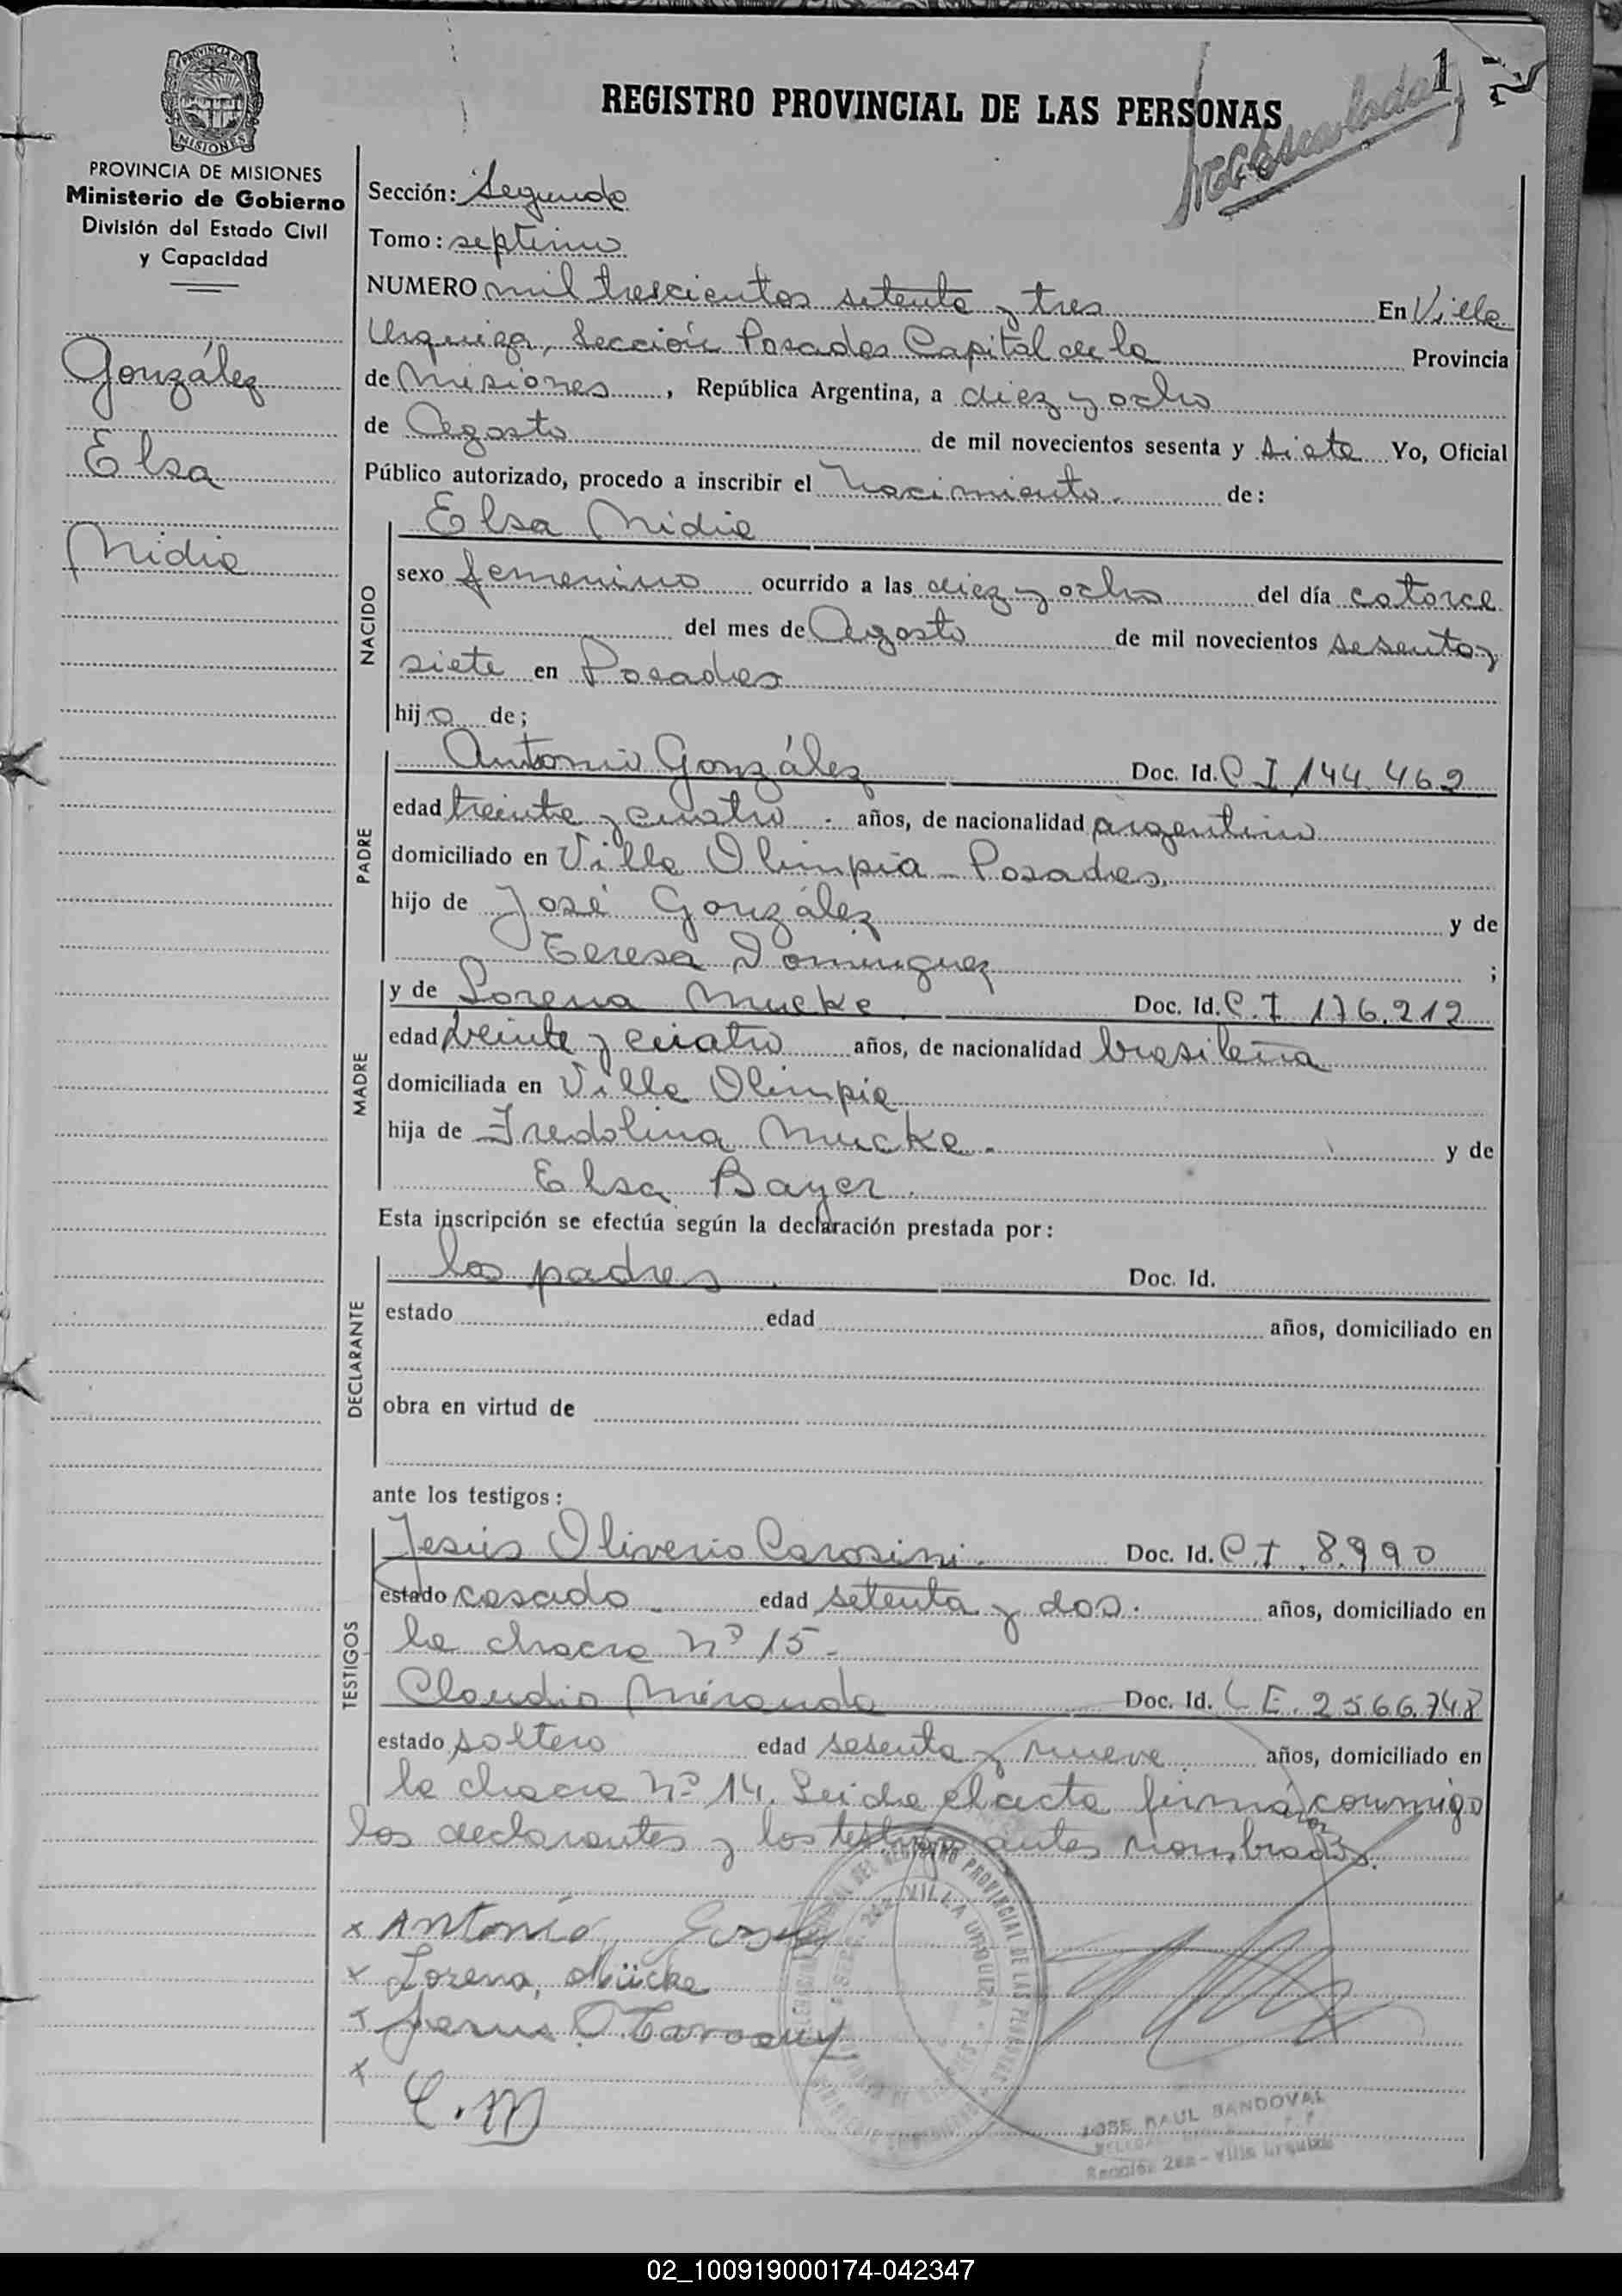 PROVINCIA DE
MISIONES
PROVINCIA DE MISIONES
Ministerio de Gobierno
División del Estado Civil
y Capacidad
González
Elsa
Nidia
REGISTRO PROVINCIAL DE LAS PERSONAS
1
Sección: Segunda
Tomo: septimo
NUMERO mil trescientos setenta y tres En Villa
Urquiza, Sección Posadas Capital de la Provincia
de Misiones, República Argentina, a diez y ocho
de Agosto de mil novecientos sesenta y siete Yo, Oficial
Público autorizado, procedo a inscribir el Nacimiento. de:
NACIDO
Elsa Nidia
sexo femenino ocurrido a las diez y ocho del día catorce
del mes de Agosto de mil novecientos sesenta y
siete en Posadas
hija de;
PADRE
Antonio González Doc. Id. C I 144.462
edad treinta y cuatro - años, de nacionalidad argentino
domiciliado en Villa Olimpia - Posadas.
hijo de José González y de
Teresa Dominguez ;
MADRE
y de Lorena Mucke. Doc. Id. C. I 176.212
edad veinte y cuatro años, de nacionalidad brasileña
domiciliada en Villa Olimpia
hija de Fredolina Mucke. y de
Elsa Bayer.
Esta inscripción se efectúa según la declaración prestada por:
DECLARANTE
los padres. Doc. Id.
estado edad años, domiciliado en
obra en virtud de
ante los testigos:
TESTIGOS
Jesús Oliverio Carosini. Doc. Id. C I. 8.990
estado casado - edad setenta y dos. años, domiciliado en
la chacra Nº 15 -
Claudio Miranda Doc. Id. L E. 2566.748
estado soltero edad sesenta y nueve. años, domiciliado en
la chacra Nº 14. Leida el acta firman conmigo
los declarantes y los testigos antes nombrados.
x Antonio
x Lorena, Mücke
x Jesus O
x C. M
VILLA URQUIZA
JOSE RAUL SANDOVAL
Sección 2da - Villa Urquiza
02_100919000174-042347